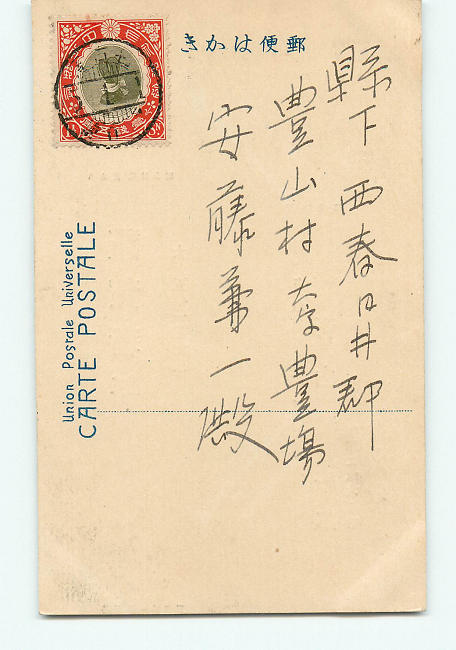 郵便はかき
縣下西春日井郡
豊山村大字豊場
安藤兼一殿
Union Postale Universelle
CARTE POSTALE